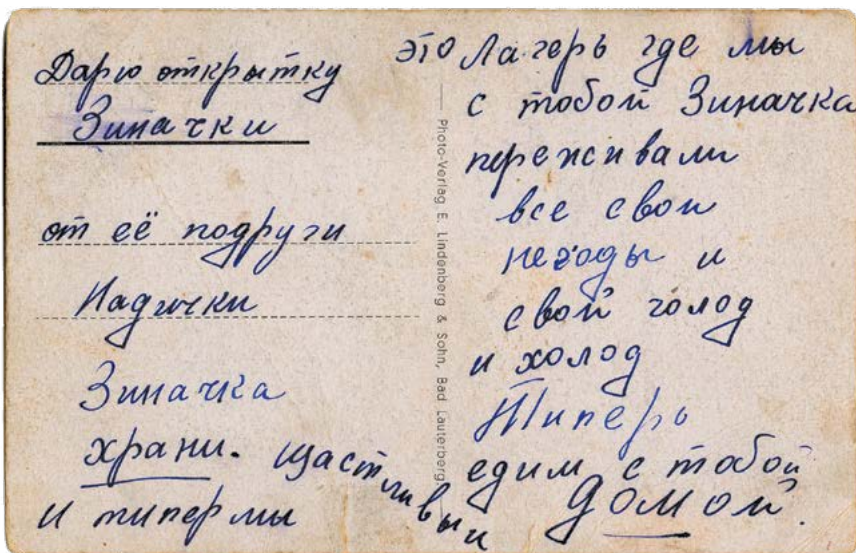 Дарю открытку
Зиначки
от её подруги
Надички
Зиначка
храни. щастливыи
и типер мы
Photo-Verlag E. Lindenberg & Sohn, Bad Lauterberg
это Лагерь где мы
с тобой Зиначка
переживали
все свои
негоды и
свой голод
и холод
Типерь
едим с тобой
домой.